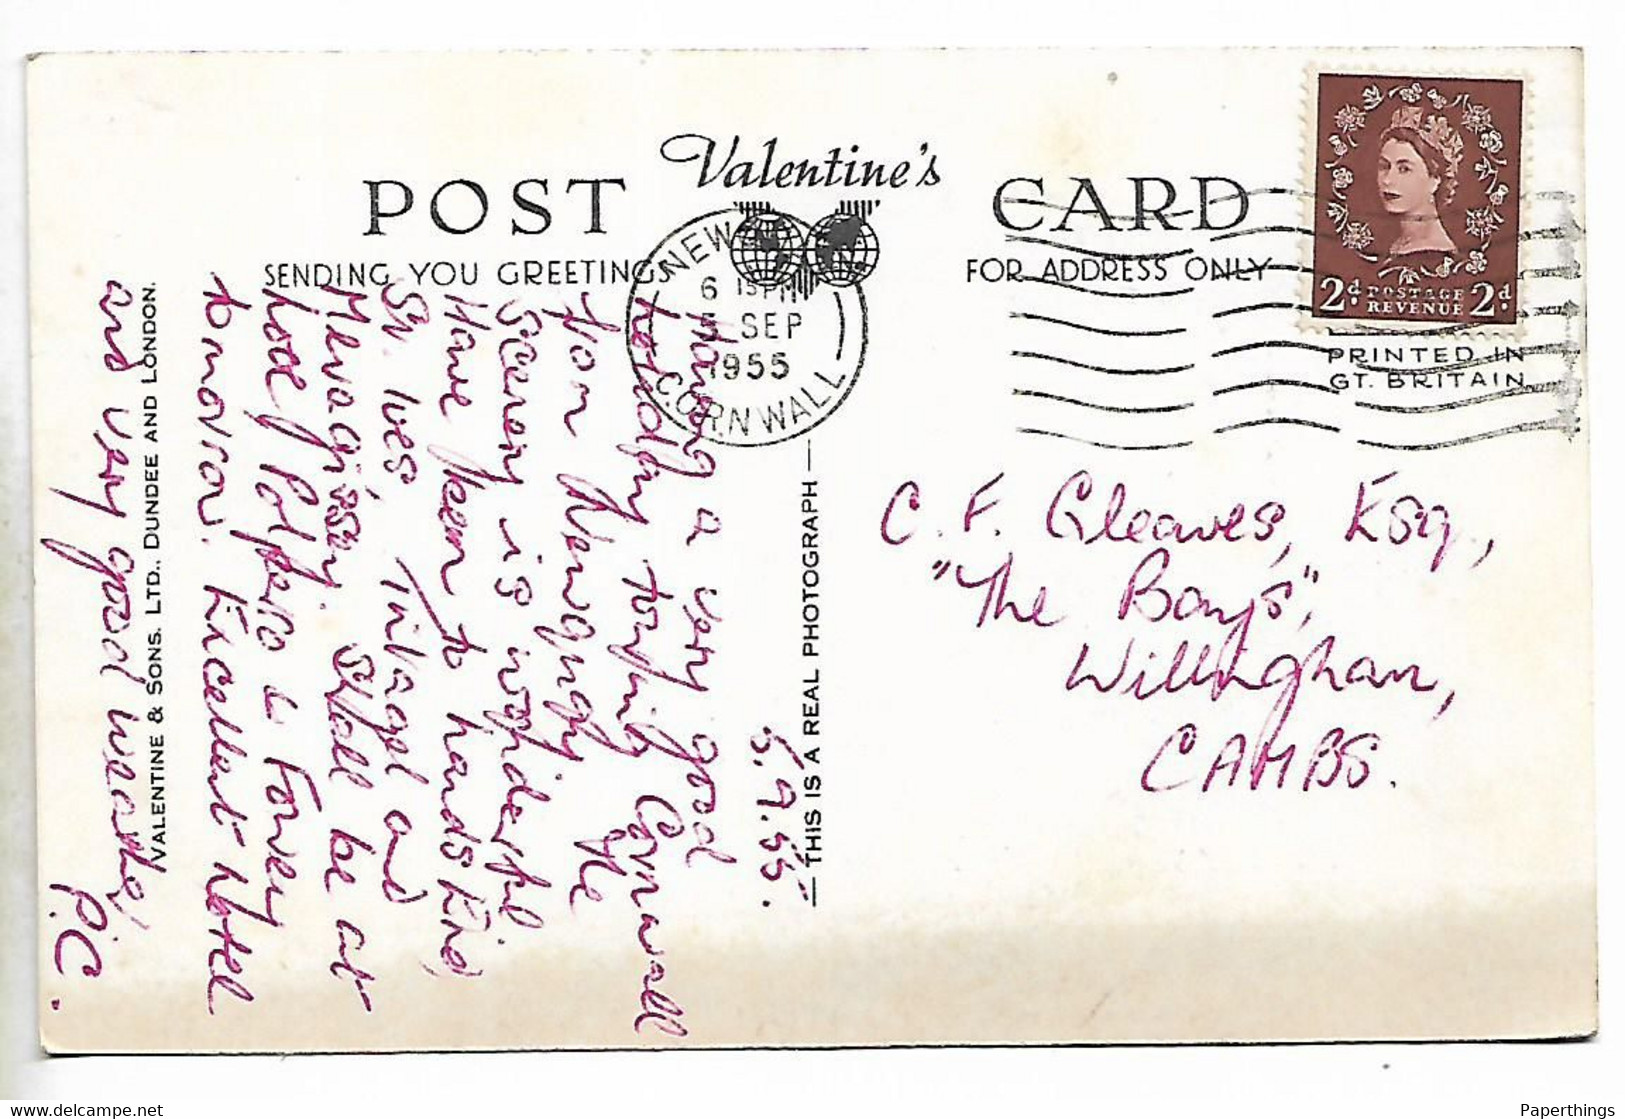 Valentine's
POST CARD
SENDING YOU GREETINGS
FOR ADDRESS ONLY
NEW
6 15 PM
5 SEP
1955
CORNWALL
2d POSTAGE REVENUE 2d
PRINTED IN
GT. BRITAIN
5.9.55.
Having a very good
holiday touring Cornwall
from Newquay. The
Scenery is wonderful
Have been to Lands End,
St. Ives, Tintagel and
Mevagissey. Shall be at
Looe, Polperro & Fowey
tomorrow. Excellent Hotel
and very good weather,
P.C.
C. F. Gleaves, Esq.,
"The Bays",
Willingham,
CAMBS.
THIS IS A REAL PHOTOGRAPH
VALENTINE & SONS. LTD., DUNDEE AND LONDON.
delcampe.net
Paperthings